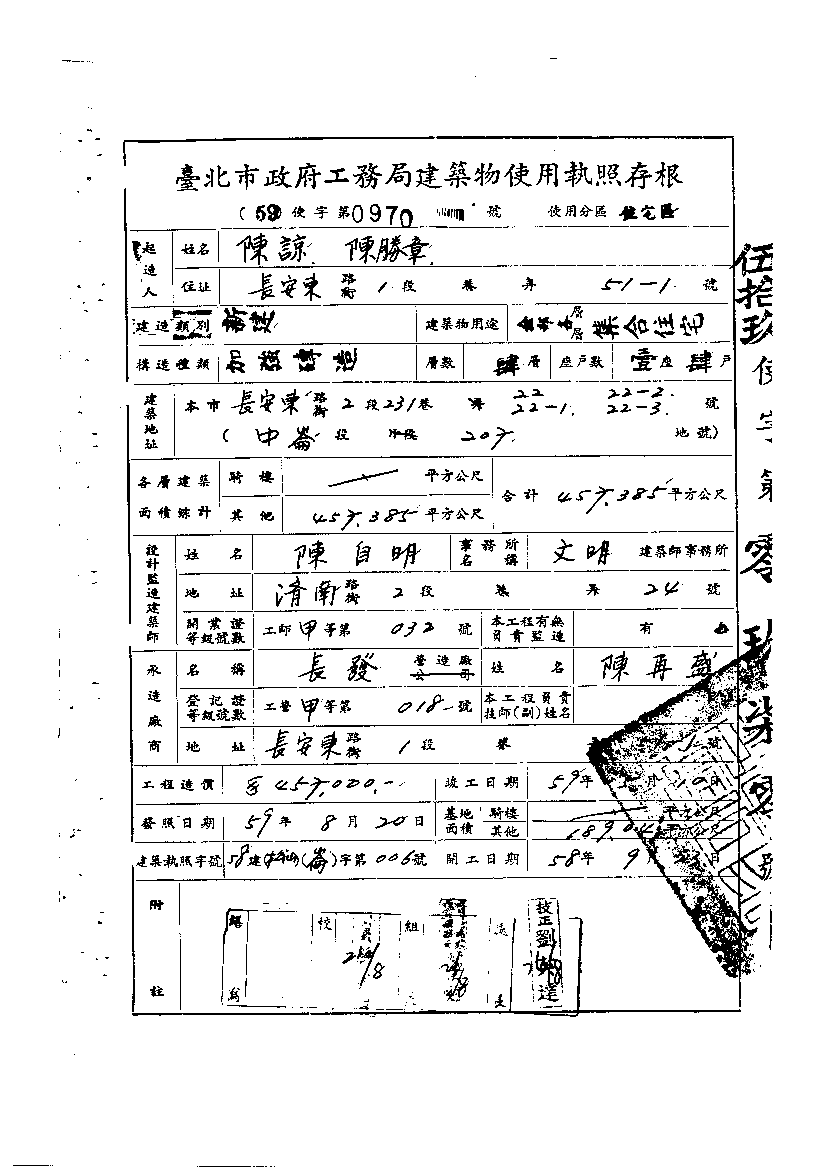 臺北市政府工務局建築物使用執照存根
(59)使字第0970號 使用分區 住宅區
起造人 姓名 陳諒 陳勝章
住址 長安東路街 1段 巷 弄 51-1號
建造類別 新建 建築物用途 各層 集合住宅
構造種類 加強磚造 層數 肆層 座戶數 壹座肆戶
建築地址 本市長安東路街2段231巷 弄 22 22-1. 22-2. 22-3. 號
(中崙段 小段 地號)
各層建築面積總計 騎樓 平方公尺
其他 平方公尺 合計 平方公尺
設計監造建築師 姓名 陳自明 事務所名稱 文明 建築師事務所
地址 濟南路街 2段 巷 弄 24號
開業證等級號數 工師甲等第032號 本工程有無負責監造 有
承造廠商 名稱 長發 營造廠公司 姓名 陳再盛
登記證等級號數 工營甲等第018號 本工程負責技師(副)姓名
地址 長安東路街 1段 巷 號
工程造價 竣工日期 59年 月 日
發照日期 59年8月20日 基地面積 騎樓 平方公尺
其他
建築執照字號 58建(崙)字第006號 開工日期 58年9月 日
附註
繕寫 校 組
校正劉
伍拾玖使字第零玖柒零號